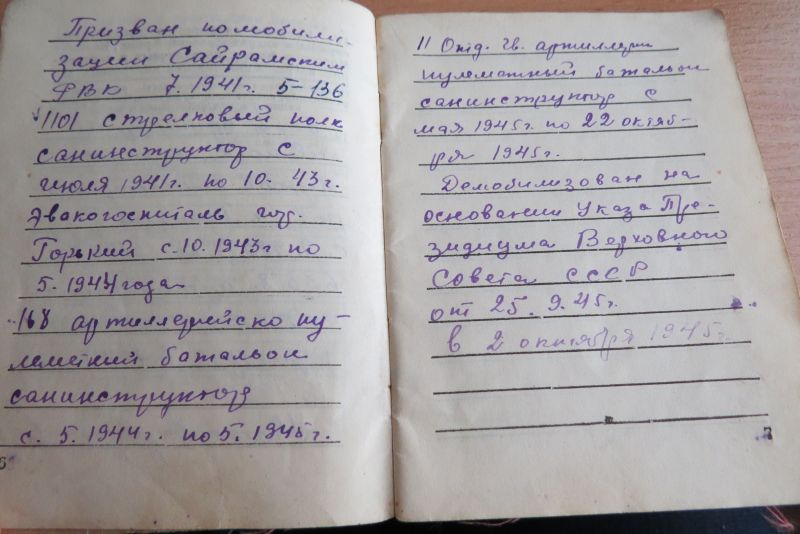 Призван помобили-
зации Сайрамским
РВК 7.1941г. 5-136
1101 стрелковый полк
санинструктор с
июля 1941г. по 10.43г.
Эвакогоспиталь гор.
Горький с.10.1943г по
5.1944года
168 артиллерийско пу-
леметний батальон
санинструктор
с. 5.1944г. по 5.1945г.
6
11 Отд. Гв. артиллери
пулеметный батальон
санинструктор с
мая 1945г. по 22 октяб-
ря 1945г.
Демобилизован на
основании Указа Пре-
зидиума Верховного
Совета СССР
от 25.9.45г.
в 2 октября 1945г.
7